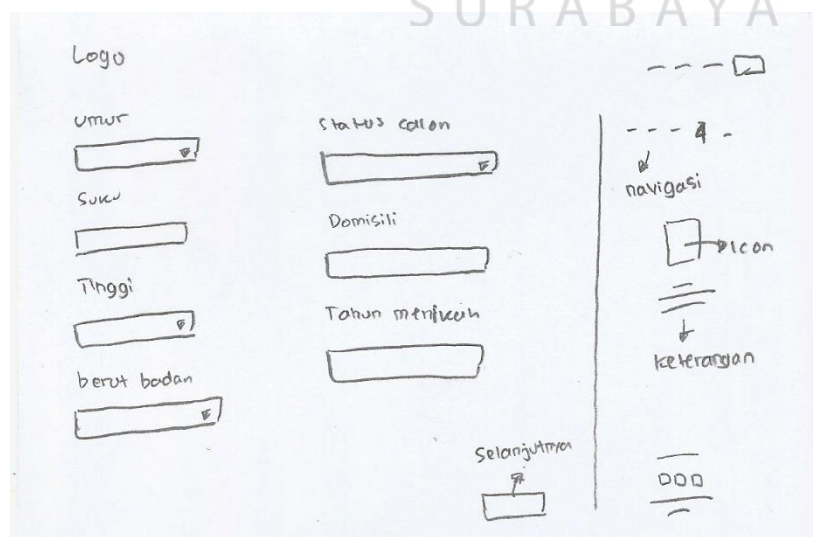 SURABAYA
Logo
umur
Suku
Tinggi
berat badan
Status calon
Domisili
Tahun menikah
Selanjutnya
4
navigasi
icon
keterangan